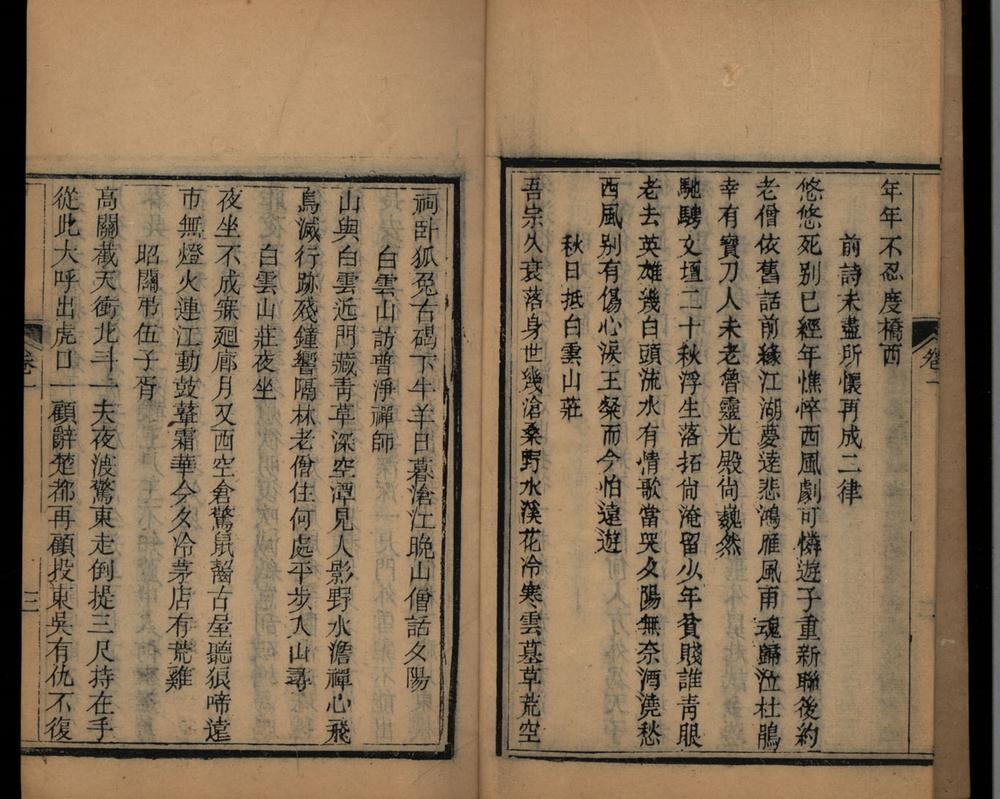 年年不忍度橋西
前詩未盡所懷再成二律
悠悠死別已經年憔悴西風劇可憐遊子重新聯後約
老僧依舊話前緣江湖夢遶悲鴻雁風雨魂歸泣杜鵑
幸有寶刀人未老魯靈光殿尚巍然
馳騁文壇二十秋浮生落拓尚淹留少年貧賤誰青眼
老去英雄幾白頭流水有情歌當哭夕陽無奈酒澆愁
西風別有傷心淚王粲而今怕遠遊
秋日抵白雲山莊
吾宗久衰落身世幾滄桑野水溪花冷寒雲墓草荒空
卷一
祠卧狐兔古碣下牛羊日暮滄江晚山僧話夕陽
白雲山訪普淨禪師
山與白雲近門藏青草深空潭見人影野水澹禪心飛
鳥滅行跡殘鐘響隔林老僧住何處平步入山尋
白雲山莊夜坐
夜坐不成寐廻廊月又西空倉驚鼠齧古屋聽狼啼遠
市無燈火連江動鼓鼙霜華今夕冷茅店有荒雞
昭關弔伍子胥
高關截天衝北斗一夫夜渡驚東走倒提三尺持在手
從此大呼出虎口一顧辭楚都再顧投東吳有仇不復
卷一
三